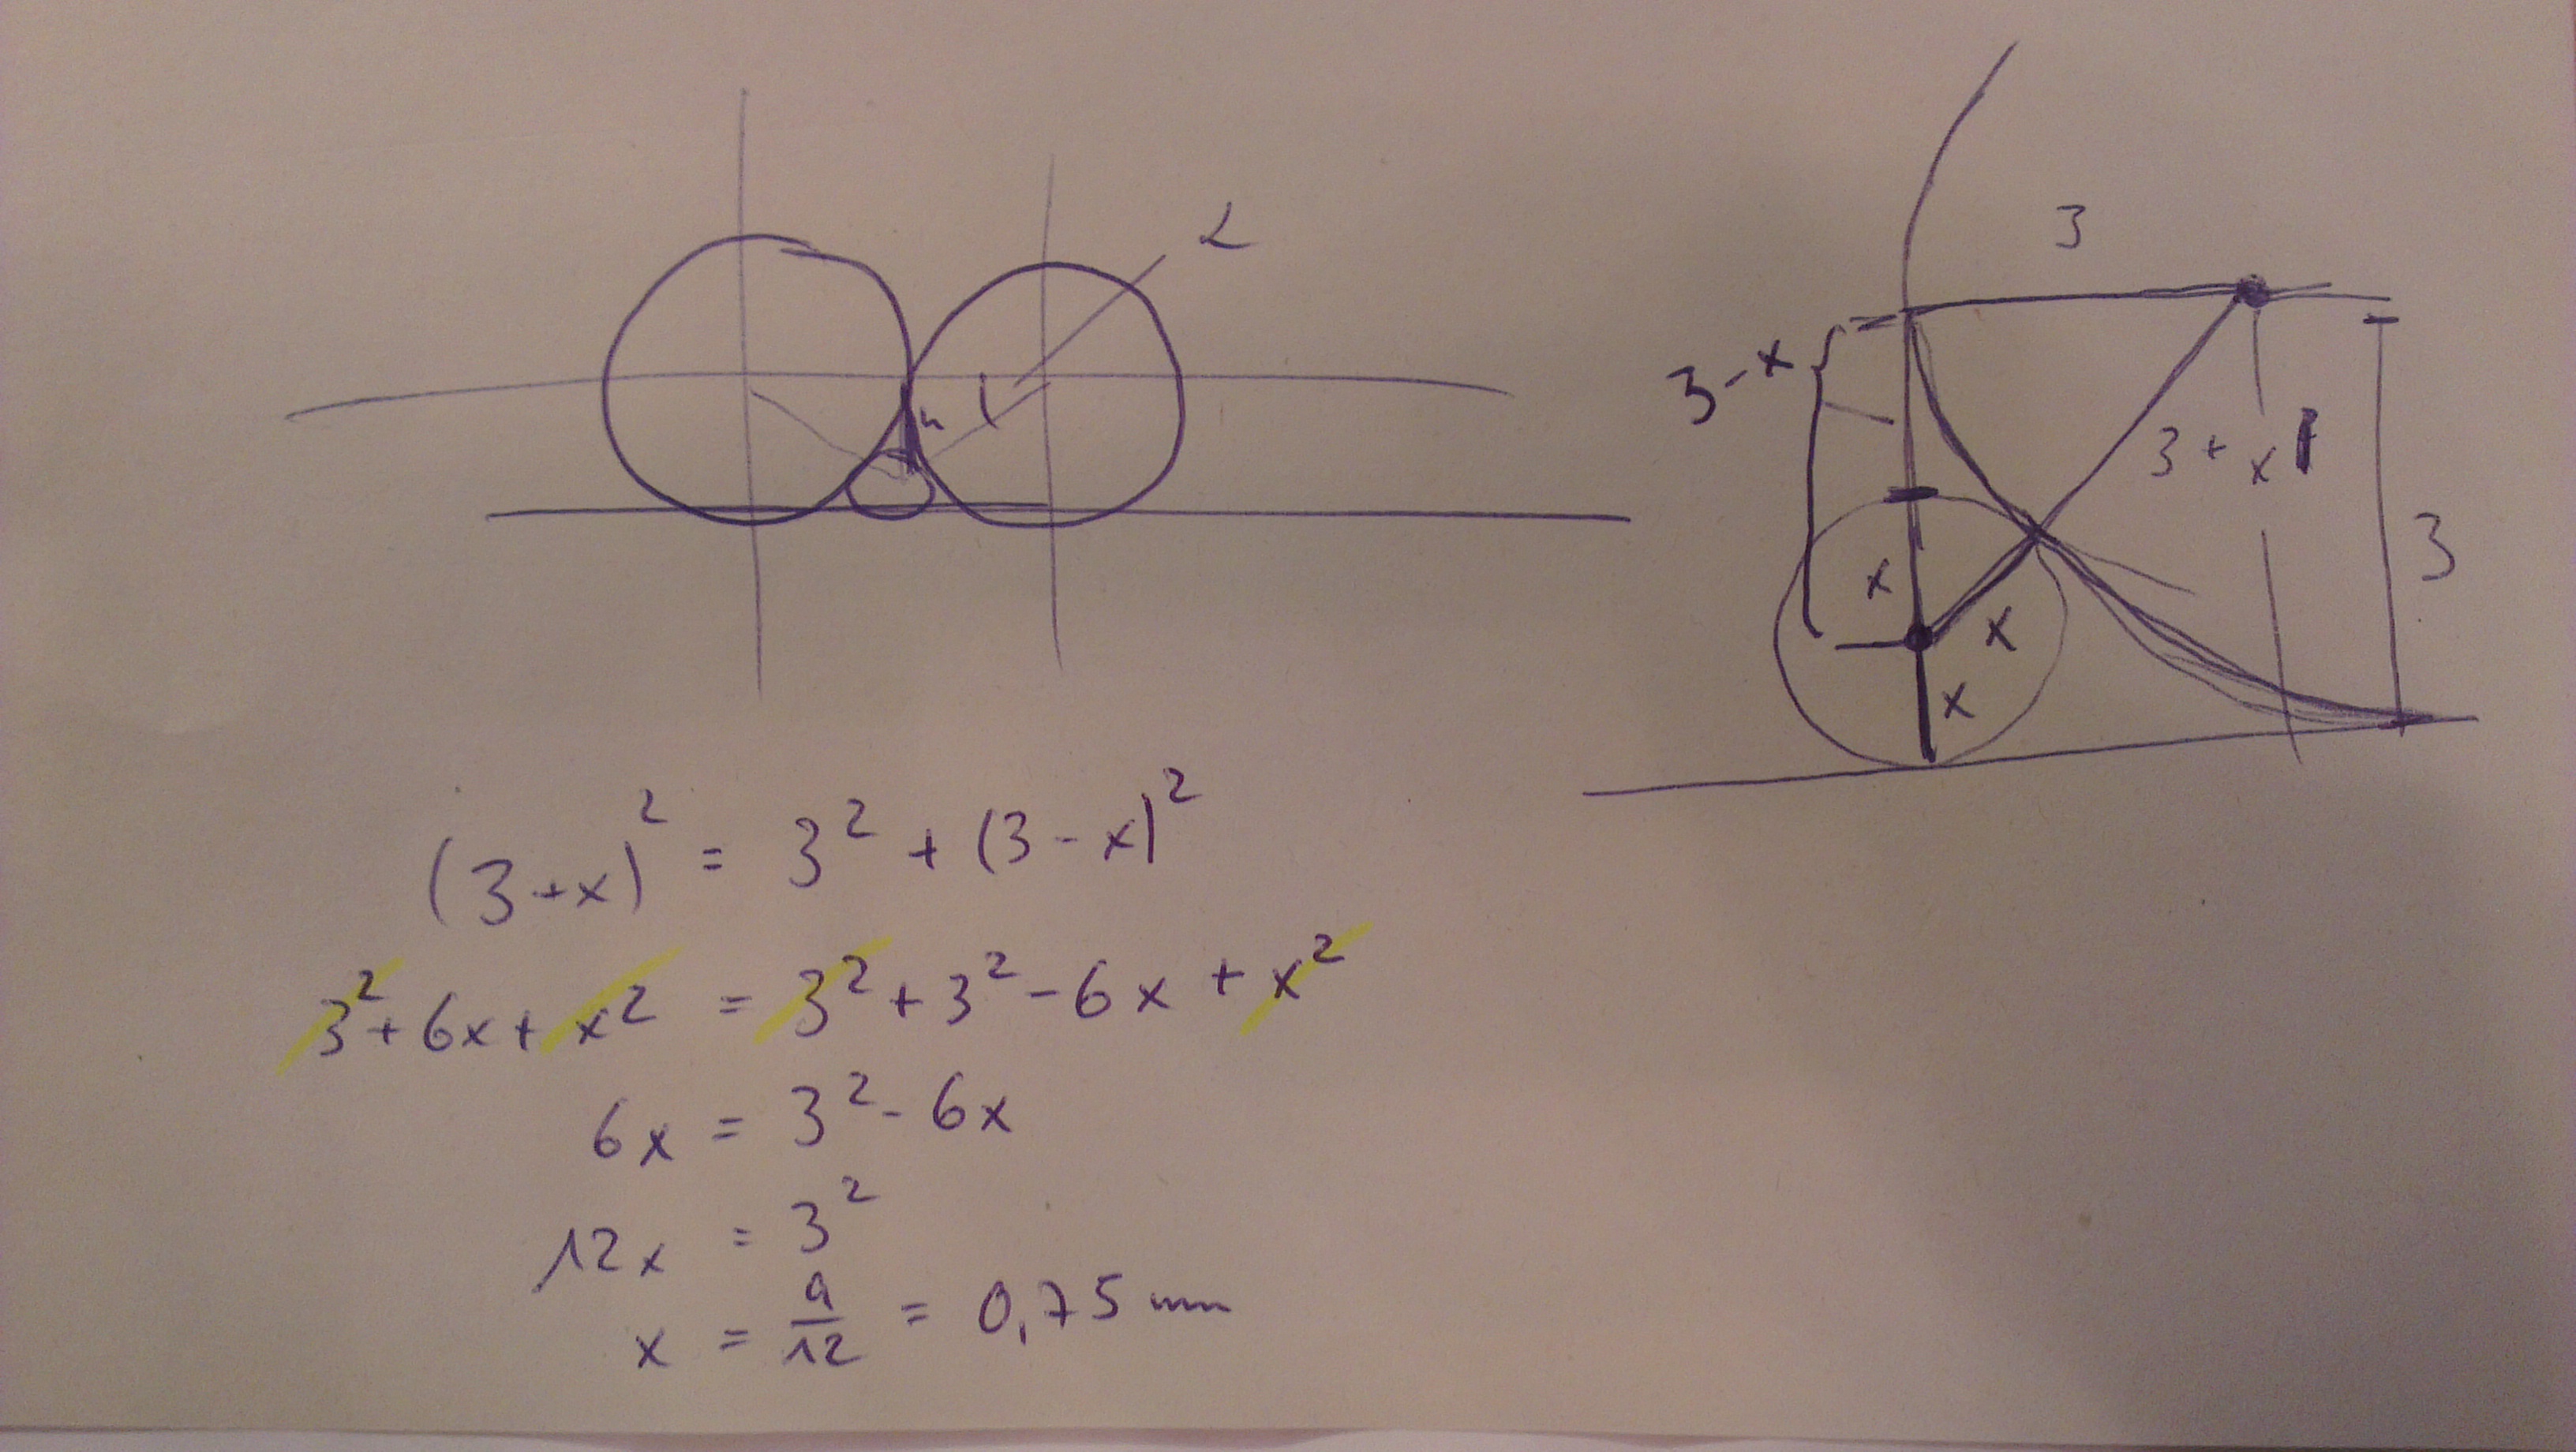 2
h
3
3-x
3+x
3
x
x
x
(3+x)² = 3² + (3-x)²
3²+6x+x² = 3²+3²-6x+x²
6x = 3²-6x
12x = 3²
x = 9/12 = 0,75 mm